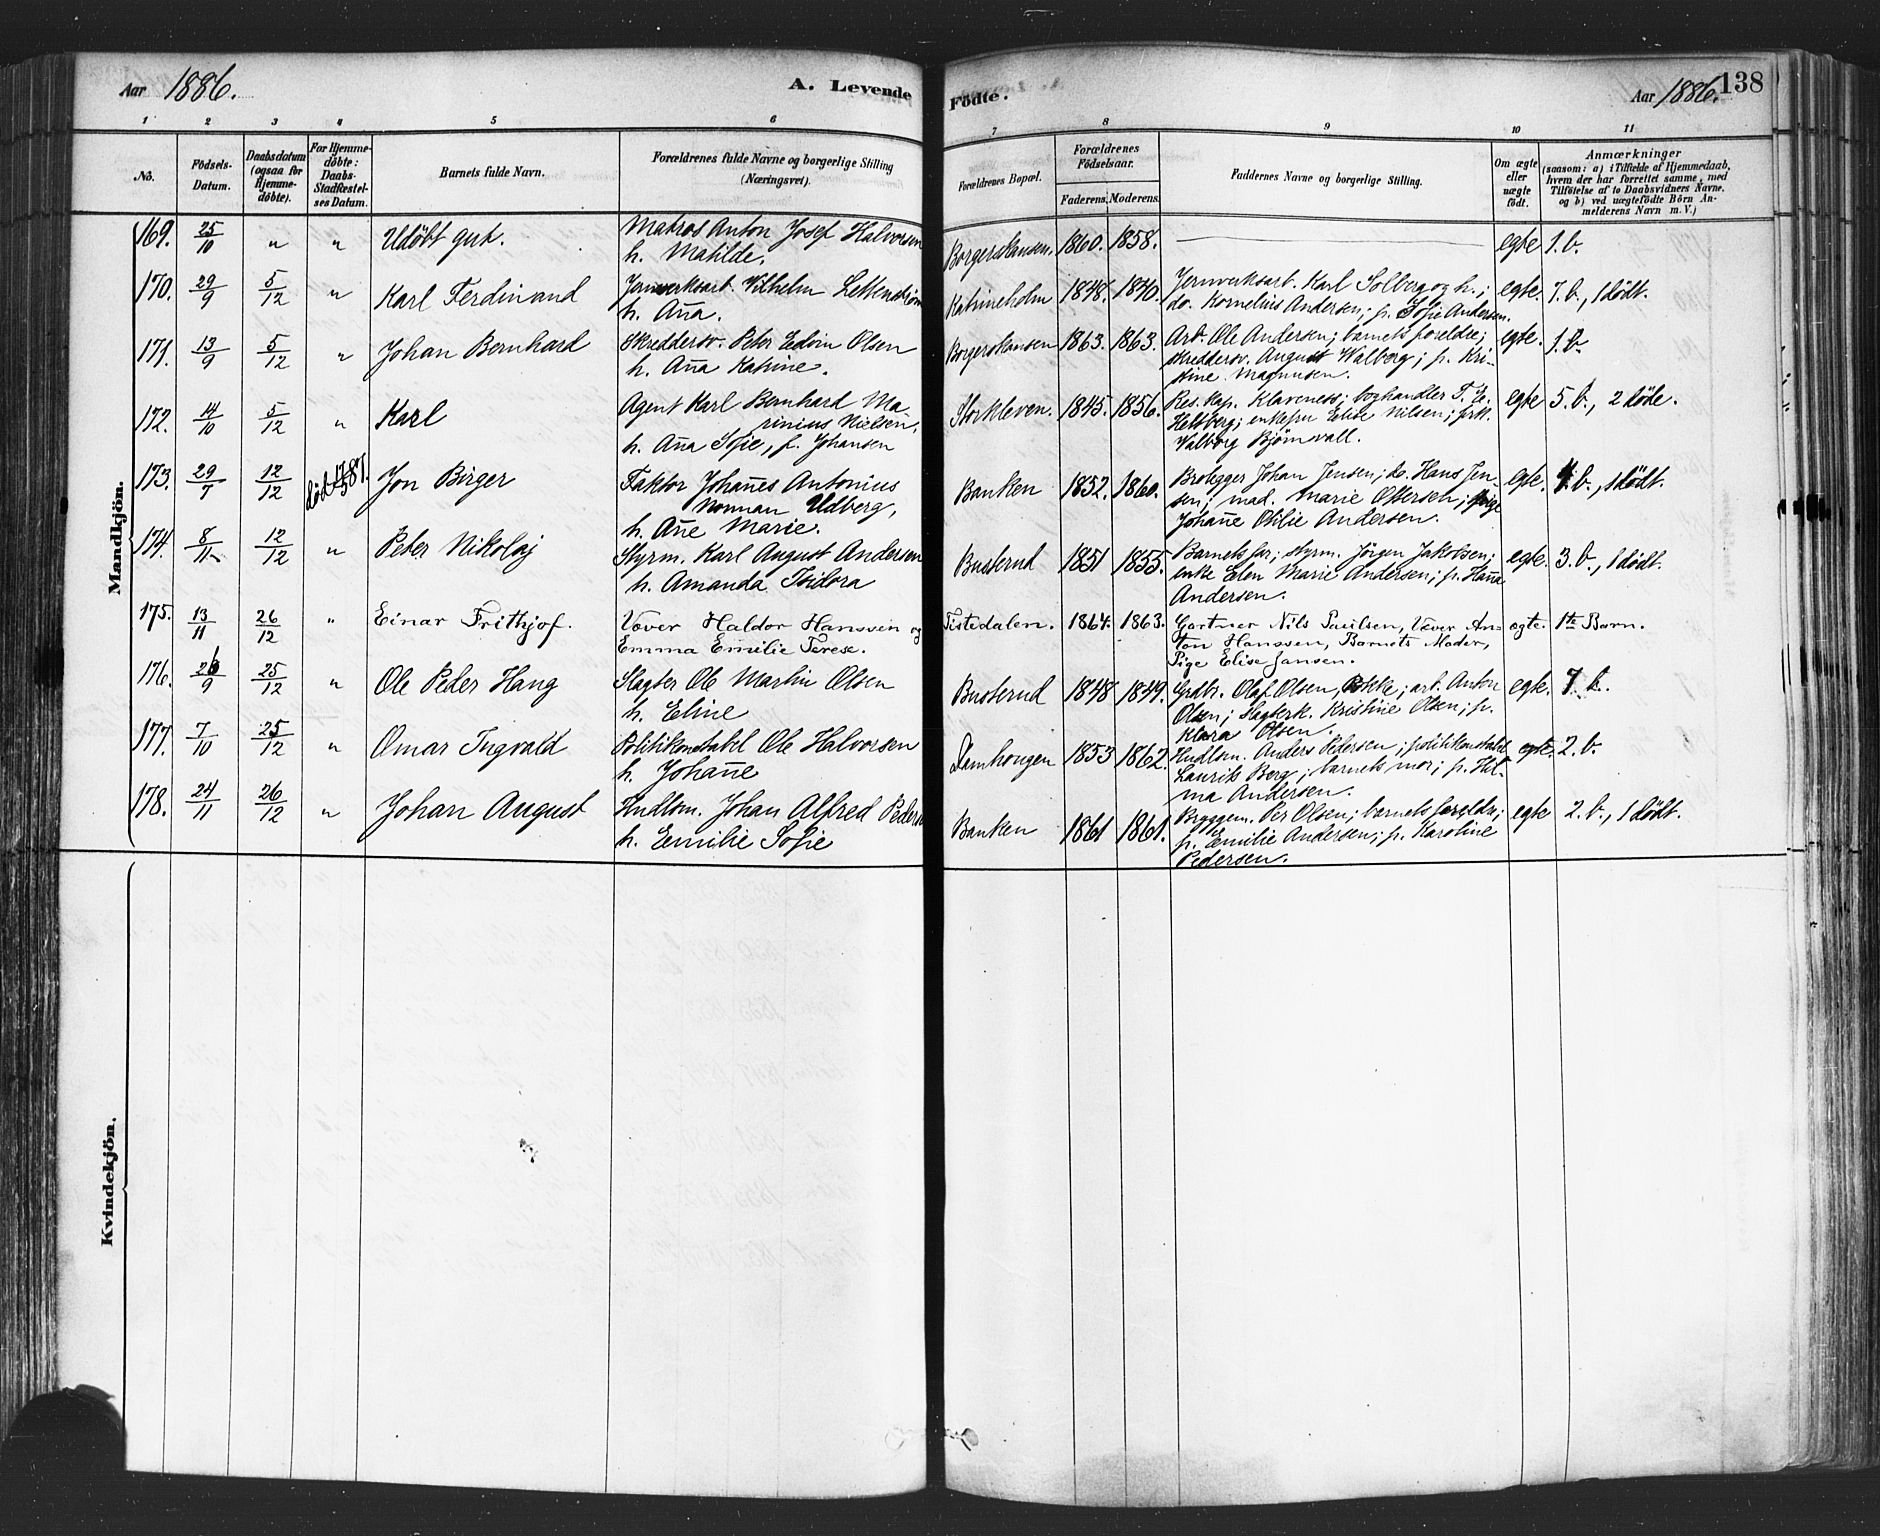 Aar 1886. A. Levende Födte. Aar 1886. 138
1 2 3 4 5 6 7 8 9 10 11
No. Födsels-Datum. Daabsdatum (ogsaa for Hjemmedöbte). For Hjemmedöbte: Daabs-Stadfæstelses Datum. Barnets fulde Navn. Forældrenes fulde Navne og borgerlige Stilling (Næringsvei). Forældrenes Bopæl. Forældrenes Födselsaar. Faderens. Moderens. Faddernes Navne og borgerlige Stilling. Om ægte eller uægte födt. Anmærkninger (saasom: a) i Tilfælde af Hjemmedaab, hvem der har forrettet samme, med Tilföielse af to Daabsvidners Navne, og b) ved uægtefödte Börn Anmelderens Navn m. V.)
Mandkjön.
169. 25/10 " " Udöbt gut. Matros Anton Josef Halvorsen
h. Matilde. Borgerskansen. 1860. 1858. egte 1. b.
170. 29/9 5/12 " Karl Ferdinand Jernverksarb. Vilhelm
h. Aña. Katrineholm 1848. 1840. Jernverksarb. Karl Solberg og h.;
do. Kornelius Andersen; p. Sofie Andersen. egte. 7. b., 1 dödt.
171. 13/9 5/12 " Johan Bernhard Skreddersv. Peter Edvin Olsen
h. Aña Katrine. Borgerskansen 1863. 1863. Arb. Ole Andersen; barnets foreldre;
skreddersv. August Walberg; p. Kri-
stine Magnusen. egte. 1. b.
172. 14/10 5/12 " Karl Agent Karl Bernhard Ma-
rinius Nielsen,
h. Aña Sofie, f. Johansen Storkleven. 1845. 1856. Res. kap. Klaveness; boghandler
enkefru Elise Nilsen; frk.
Valborg Björnvall. egte 5. b., 2 döde.
173. 29/7 12/12 död 17/5 87. Jon Birger Faktor Johañes Antonius
Norman Udberg,
h. Añe Marie. Banken 1852. 1860. Brolegger Johan Jensen; do. Hans Jen-
sen; mad. Marie Ottersen; pige
Johañe Otilie Andersen. egte. 4. b., 1 dödt.
174. 8/11 12/12 " Peter Nikolaj Styrm. Karl August Andersen
h. Amanda Isidora Busterud 1851 1855. Barnets far; styrm. Jörgen Jakobsen;
enke Elen Marie Andersen; p. Haña
Andersen. egte. 3. b., 1 dödt.
175. 13/11 26/12 " Einar Frithjof. Væver Haldor Hanssen og
Emma Emilie Terese. Tistedalen. 1864. 1863. Gartner Nils Paulsen, Væver An-
ton Hanssen, Barnets Moder,
Pige Elise Jansen. ægte. 1te Barn.
176. 26/9 25/12 " Ole Peder Hang Slagter Ole Martin Olsen
h. Eline Busterud 1848 1849. Grdbr. Olaf Olsen, Bökke; arb. Anton
Olsen; slagterk. Kristine Olsen; p.
Klara Olsen. egte. 7. b.
177. 7/10 25/12 " Omar Ingvald Politikonstabel Ole Halvorsen
h. Johañe Damhougen 1853 1862. Hndlsm. Anders Pedersen; politikonstabel
Laurits Berg; barnets mor; p. Hil-
ma Andersen. egte. 2. b.
178. 24/11 26/12 " Johan August Hndlsm. Johan Alfred Pedersen
h. Emilie Sofie Banken 1861 1861. Bryggem. Per Olsen; barnets foreldre;
p. Emilie Andersen; p. Karoline
Pedersen. egte 2. b., 1 dödt.
Kvindekjön.